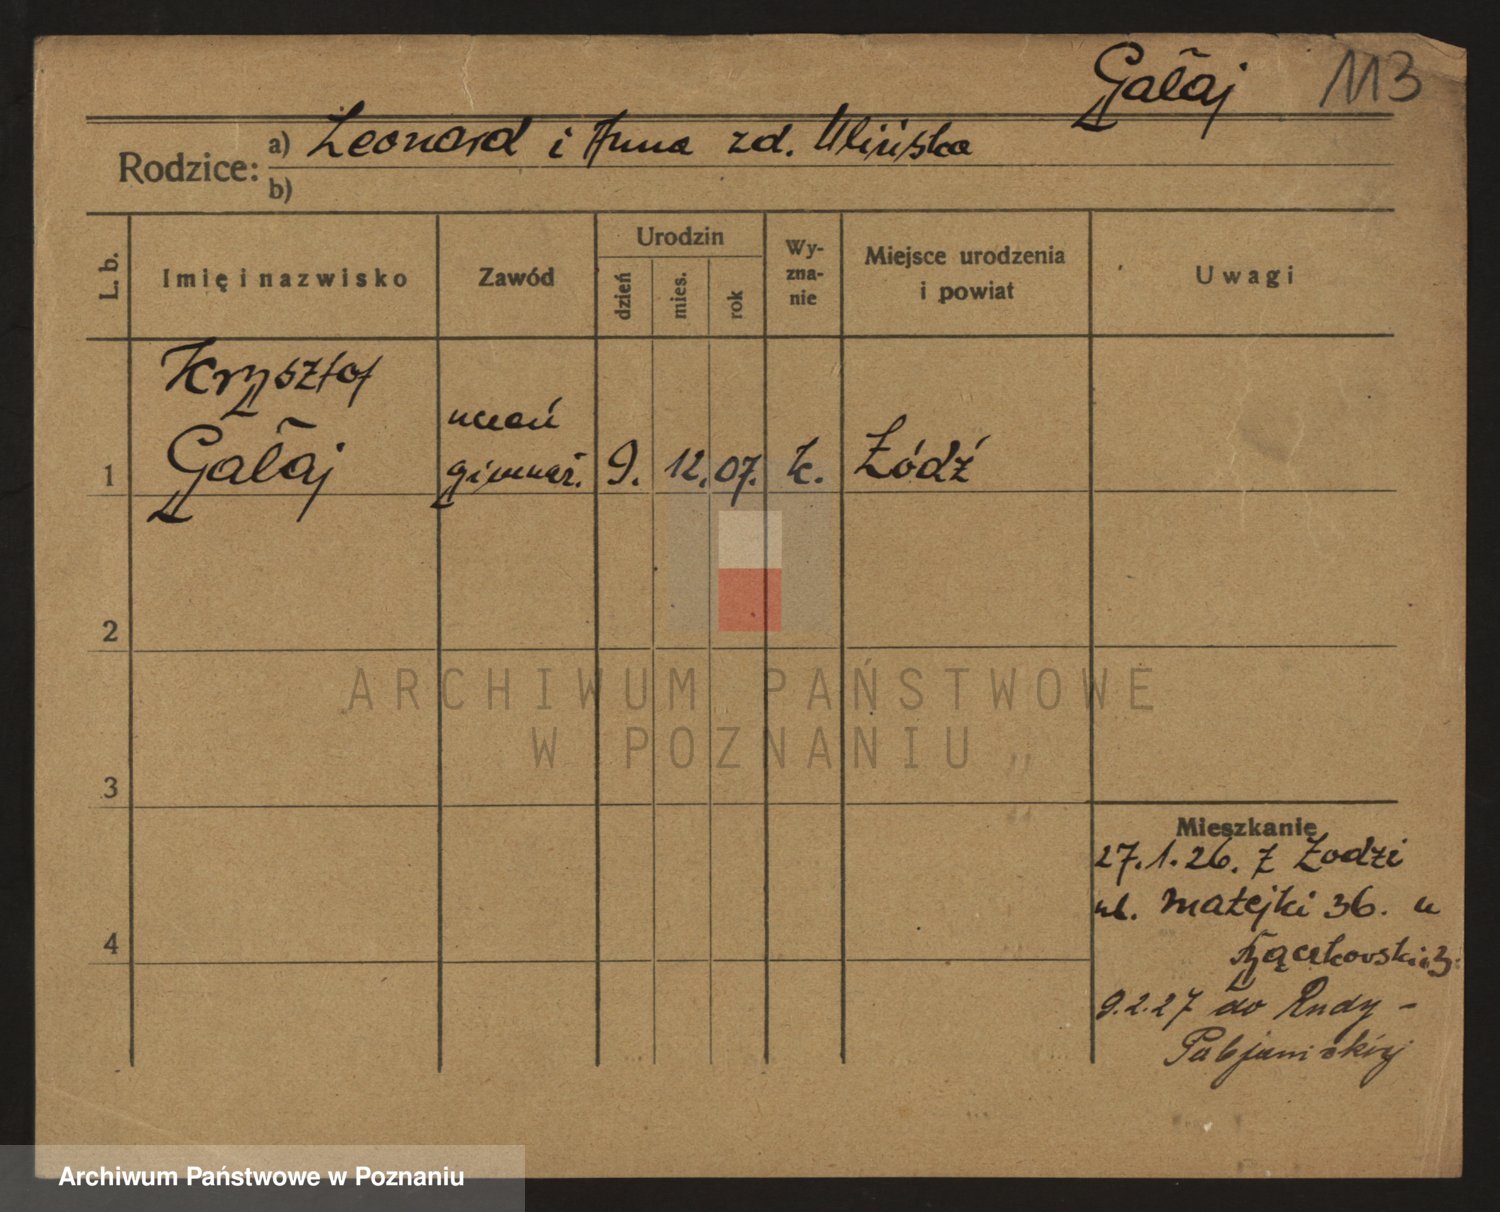 Gałaj 113
Rodzice: a) Leonard i Anna zd. Ulińska
b)
L. b.
Imię i nazwisko
Zawód
Urodzin
dzień
mies.
rok
Wy-
zna-
nie
Miejsce urodzenia
i powiat
Uwagi
Krzysztof
Gałaj
uczeń
gimnaz.
1
9. 12. 07. k. Łódź
2
ARCHIWUM PAŃSTWOWE
W POZNANIU
3
Mieszkanie
27.1.26. z Łodzi
ul. Matejki 36. u
4
9.2.27 do Rudy-
Pabjanickiej
Archiwum Państwowe w Poznaniu